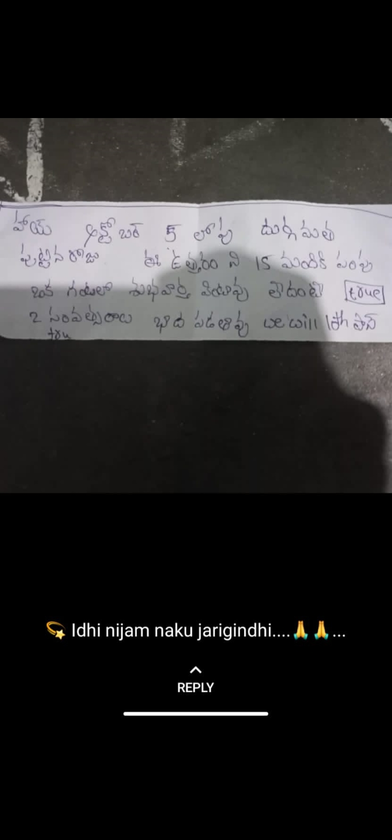 హాయ్ అక్టోబర్ 5 లోపు దుర్గమత
పుట్టినరోజు ఈ ఉత్తరం ని 15 మందికి పంపు
ఒక గంటలో శుభవార్త వింటావు లేదంటే true
2 సంవత్సరాలు బాధ పడతావు
tru
💫 Idhi nijam naku jarigindhi....🙏🙏...
REPLY